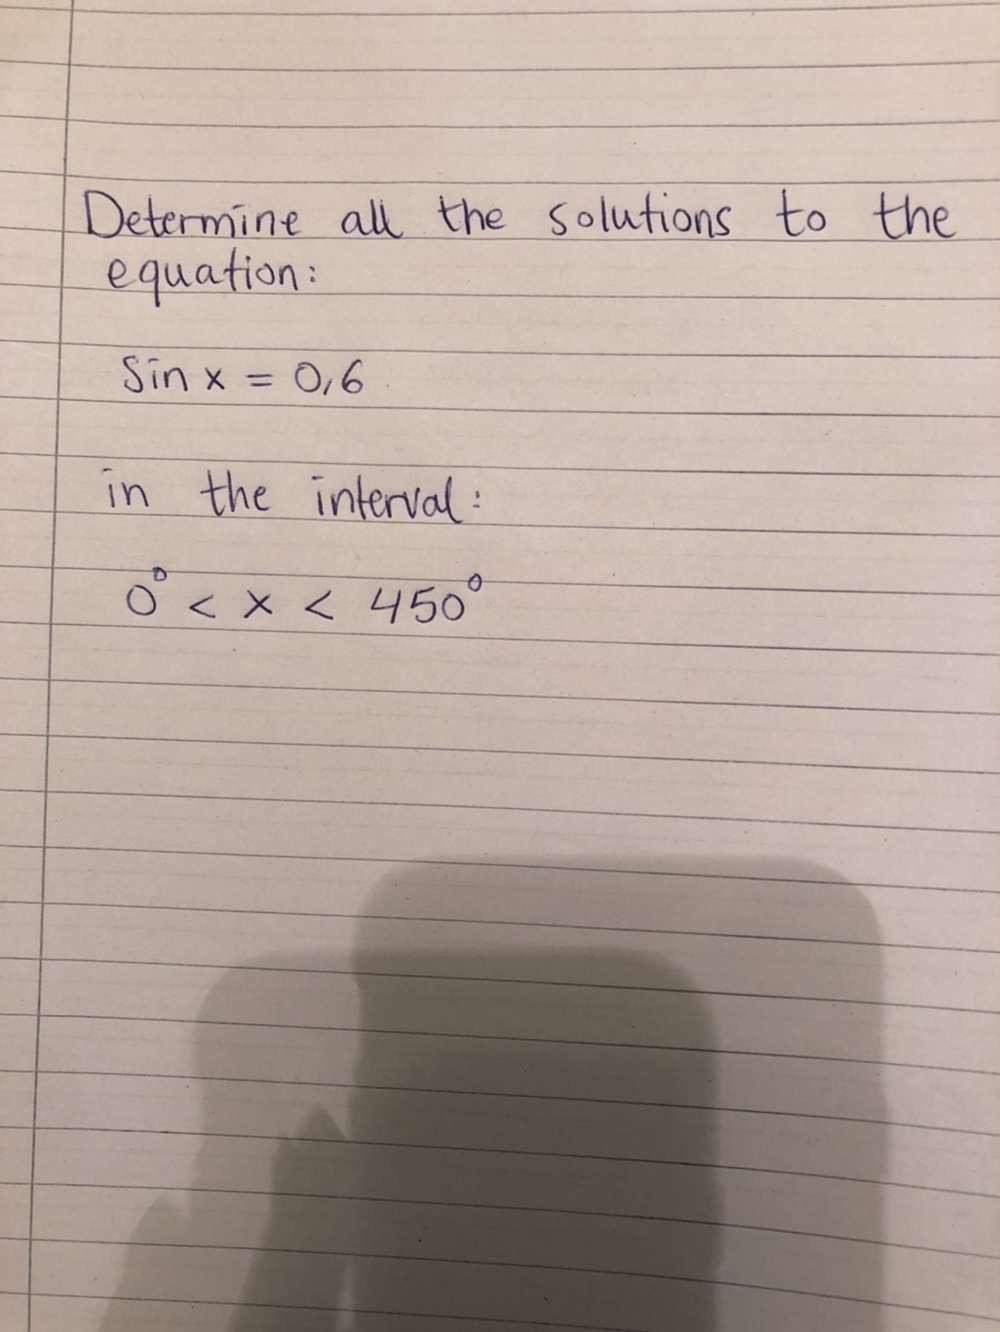 Determine all the solutions to the
equation:
Sin x = 0,6
in the interval:
0° < x < 450°